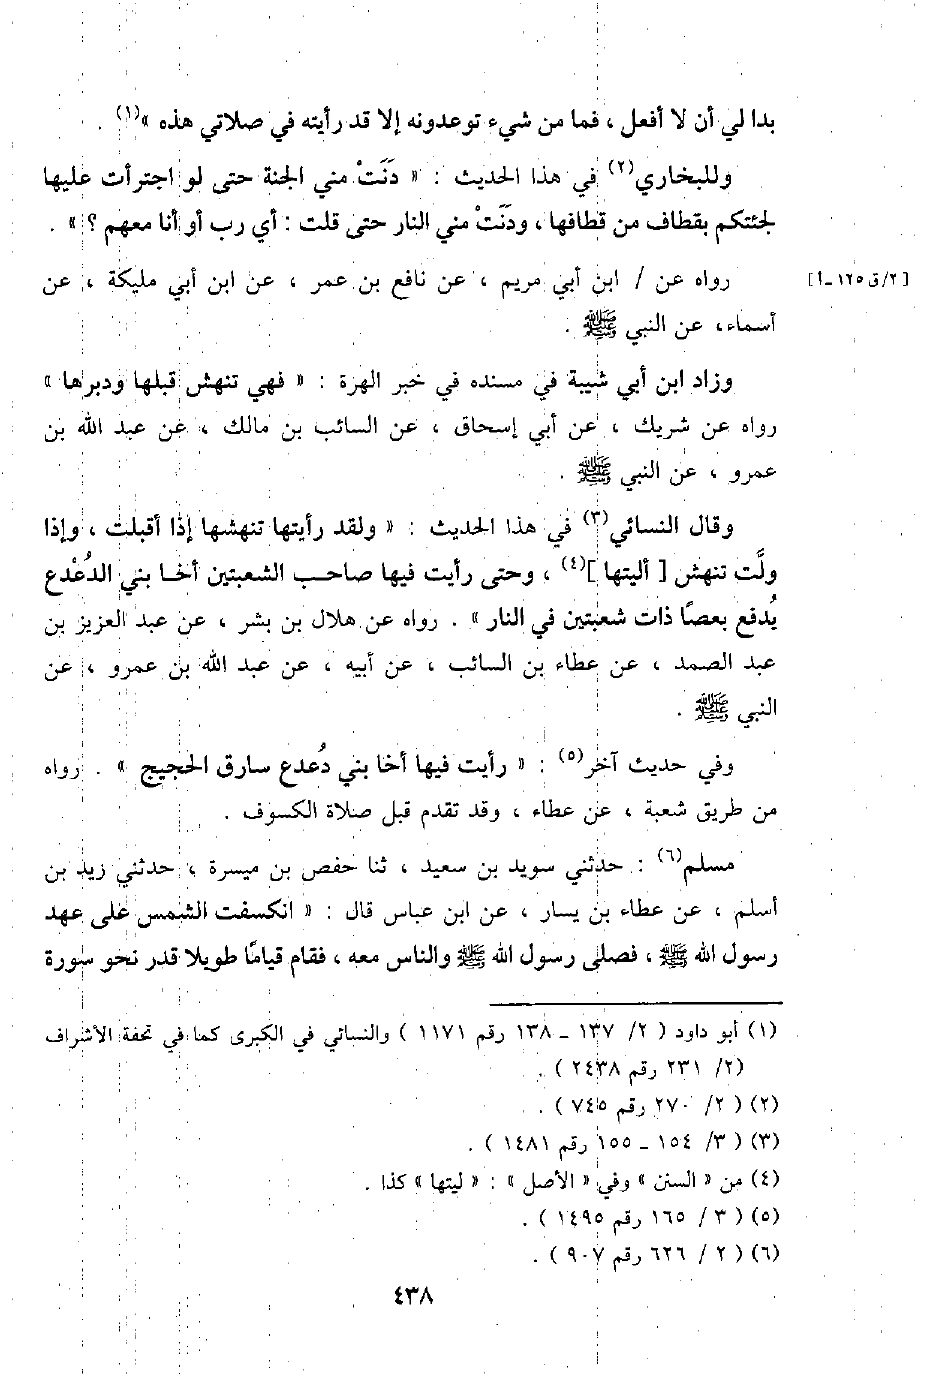 بدا لي أن لا أفعل ، فما من شيء توعدونه إلا قد رأيته في صلاتي هذه »(١) .
وللبخاري(٢) في هذا الحديث : « دَنَتْ مني الجنة حتى لو اجترأت عليها
لجئتكم بقطاف من قطافها ، ودَنَتْ مني النار حتى قلت : أي رب أو أنا معهم ؟ » .
رواه عن / ابن أبي مريم ، عن نافع بن عمر ، عن ابن أبي مليكة ، عن
[٢/ق ١٢٥ ـ أ]
أسماء، عن النبي ﷺ .
وزاد ابن أبي شيبة في مسنده في خبر الهرة : « فهي تنهش قبلها ودبرها »
رواه عن شريك ، عن أبي إسحاق ، عن السائب بن مالك ، عن عبد الله بن
عمرو ، عن النبي ﷺ .
وقال النسائي(٣) في هذا الحديث : « ولقد رأيتها تنهشها إذا أقبلت ، وإذا
ولَّت تنهش [ أليتها ](٤) ، وحتى رأيت فيها صاحب الشعبتين أخا بني الدُعْدع
يُدفع بعصًا ذات شعبتين في النار » . رواه عن هلال بن بشر ، عن عبد العزيز بن
عبد الصمد ، عن عطاء بن السائب ، عن أبيه ، عن عبد الله بن عمرو ، عن
النبي ﷺ .
وفي حديث آخر(٥) : « رأيت فيها أخا بني دُعدع سارق الحجيج » . رواه
من طريق شعبة ، عن عطاء ، وقد تقدم قبل صلاة الكسوف .
مسلم(٦) : حدثني سويد بن سعيد ، ثنا حفص بن ميسرة ، حدثني زيد بن
أسلم ، عن عطاء بن يسار ، عن ابن عباس قال : « انكسفت الشمس على عهد
رسول الله ﷺ ، فصلى رسول الله ﷺ والناس معه ، فقام قيامًا طويلا قدر نحو سورة
(١) أبو داود ( ٢/ ١٣٧ ـ ١٣٨ رقم ١١٧١ ) والنسائي في الكبرى كما في تحفة الأشراف
(٢/ ٢٣١ رقم ٢٤٣٨ ) .
(٢) ( ٢/ ٢٧٠ رقم ٧٤٥ ) .
(٣) ( ٣/ ١٥٤ ـ ١٥٥ رقم ١٤٨١ ) .
(٤) من « السنن » وفي « الأصل » : « ليتها » كذا .
(٥) ( ٣ / ١٦٥ رقم ١٤٩٥ ) .
(٦) ( ٢ / ٦٢٦ رقم ٩٠٧ ) .
٤٣٨